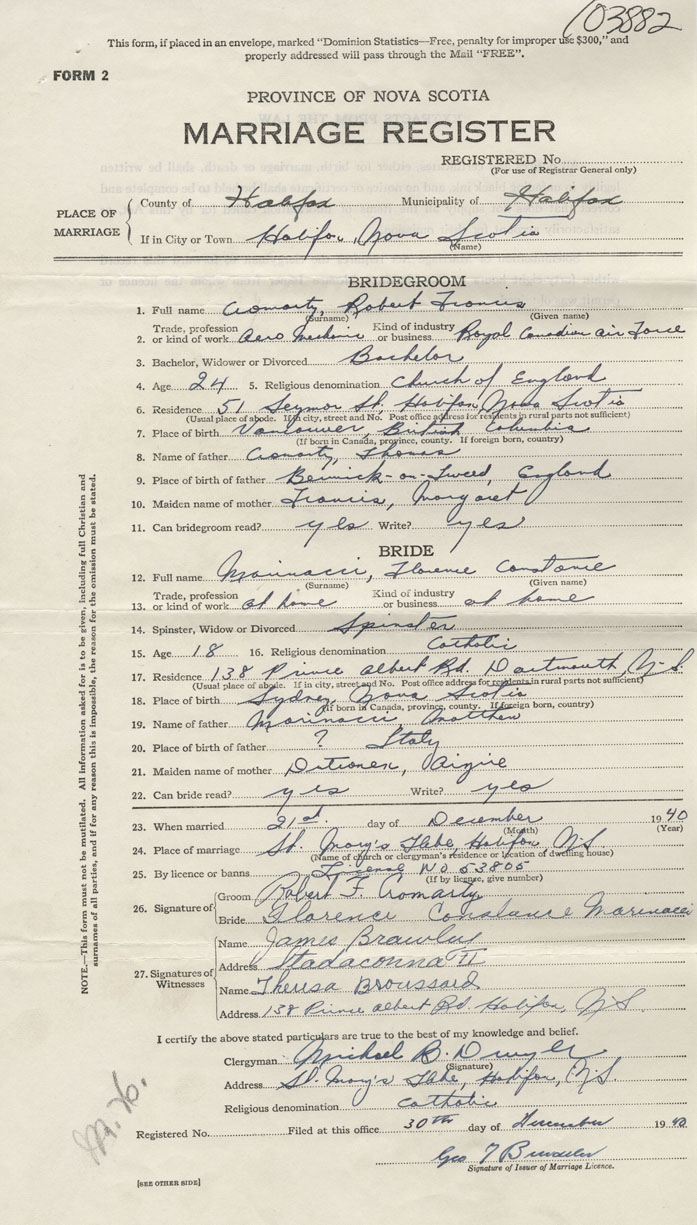 03882
This form, if placed in an envelope, marked "Dominion Statistics—Free, penalty for improper use $300," and
properly addressed will pass through the Mail "FREE".
FORM 2
PROVINCE OF NOVA SCOTIA
MARRIAGE REGISTER
REGISTERED No.
(For use of Registrar General only)
PLACE OF MARRIAGE
County of Halifax Municipality of Halifax
If in City or Town Halifax, Nova Scotia
(Name)
BRIDEGROOM
1. Full name Cromarty, Robert Francis
(Surname) (Given name)
2. Trade, profession or kind of work Aero Mechanic Kind of industry or business Royal Canadian Air Force
3. Bachelor, Widower or Divorced Bachelor
4. Age 24 5. Religious denomination Church of England
6. Residence 51 Seymor St. Halifax, Nova Scotia
(Usual place of abode. If in city, street and No. Post office address for residents in rural parts not sufficient)
7. Place of birth Vancouver, British Columbia
(If born in Canada, province, county. If foreign born, country)
8. Name of father Cromarty, Thomas
9. Place of birth of father Berwick-on-Tweed, England
10. Maiden name of mother Francis, Margaret
11. Can bridegroom read? yes Write? yes
BRIDE
12. Full name Marinacci, Florence Constance
(Surname) (Given name)
13. Trade, profession or kind of work at home Kind of industry or business at home
14. Spinster, Widow or Divorced Spinster
15. Age 18 16. Religious denomination Catholic
17. Residence 138 Prince Albert Rd. Dartmouth, N.S.
(Usual place of abode. If in city, street and No. Post office address for residents in rural parts not sufficient)
18. Place of birth Sydney, Nova Scotia
(If born in Canada, province, county. If foreign born, country)
19. Name of father Marinacci, Matthew
20. Place of birth of father ? Italy
21. Maiden name of mother
22. Can bride read? yes Write? yes
23. When married 21st. day of December 1940
(Month) (Year)
24. Place of marriage St. Mary's Glebe, Halifax N.S.
(Name of church or clergyman's residence or location of dwelling house)
25. By licence or banns License No 53805
(If by license, give number)
26. Signature of
Groom Robert F. Cromarty
Bride Florence Constance Marinacci
27. Signatures of Witnesses
Name James
Address Stadaconna II
Name Theresa Broussard
Address 138 Prince Albert Rd. Halifax, N.S.
I certify the above stated particulars are true to the best of my knowledge and belief.
Clergyman Michael B. Dwyer
(Signature)
Address St. Mary's Glebe, Halifax, N.S.
Religious denomination Catholic
Registered No. Filed at this office 30th day of December 1940
Geo
Signature of Issuer of Marriage Licence.
[SEE OTHER SIDE]
NOTE.—This form must not be mutilated. All information asked for is to be given, including full Christian and
surnames of all parties, and if for any reason this is impossible, the reason for the omission must be stated.